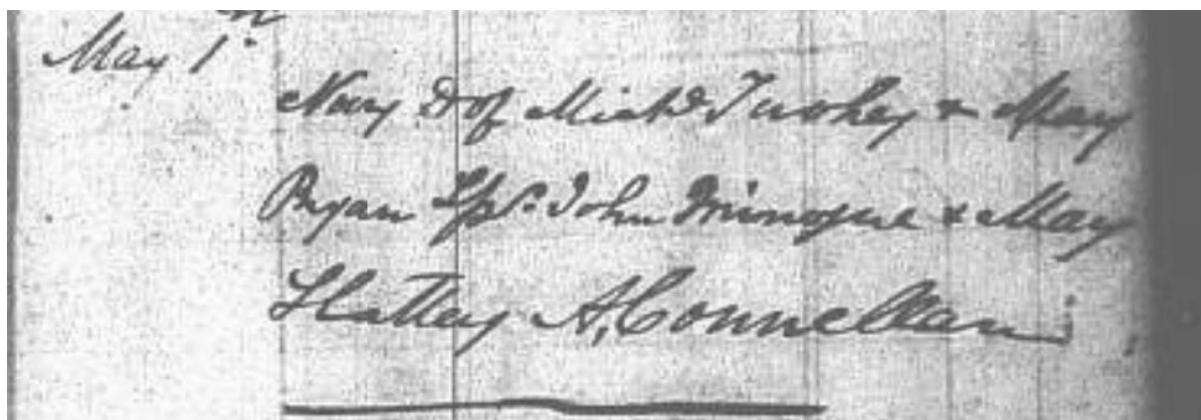 May 1st
Mary D of Michl Tuohey & Mary
Bryan Sps. John Minogue & Mary
Slattery A, Connellan